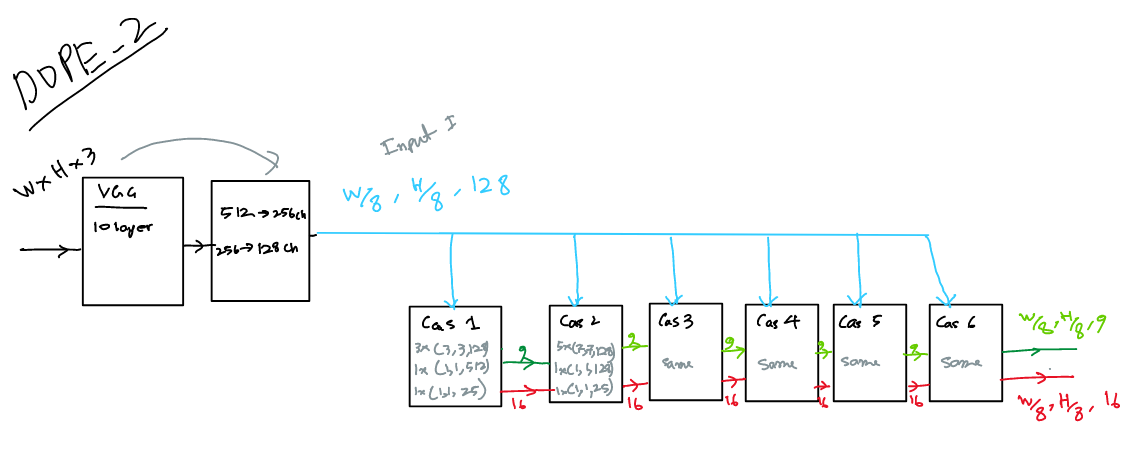 DOPE-2
WxHx3
VGG
10 layer
512→256ch
256→128 ch
Input I
W/8, H/8, 128
Cas 1
3x (3,3,128)
1x (1,1,512)
1x (1,1,25)
9
16
Cas 2
5x(7,7,128)
1x(1,1,128)
1x(1,1,25)
9
16
Cas 3
same
9
16
Cas 4
same
9
16
Cas 5
same
9
16
Cas 6
same
W/8, H/8, 9
W/8, H/8, 16